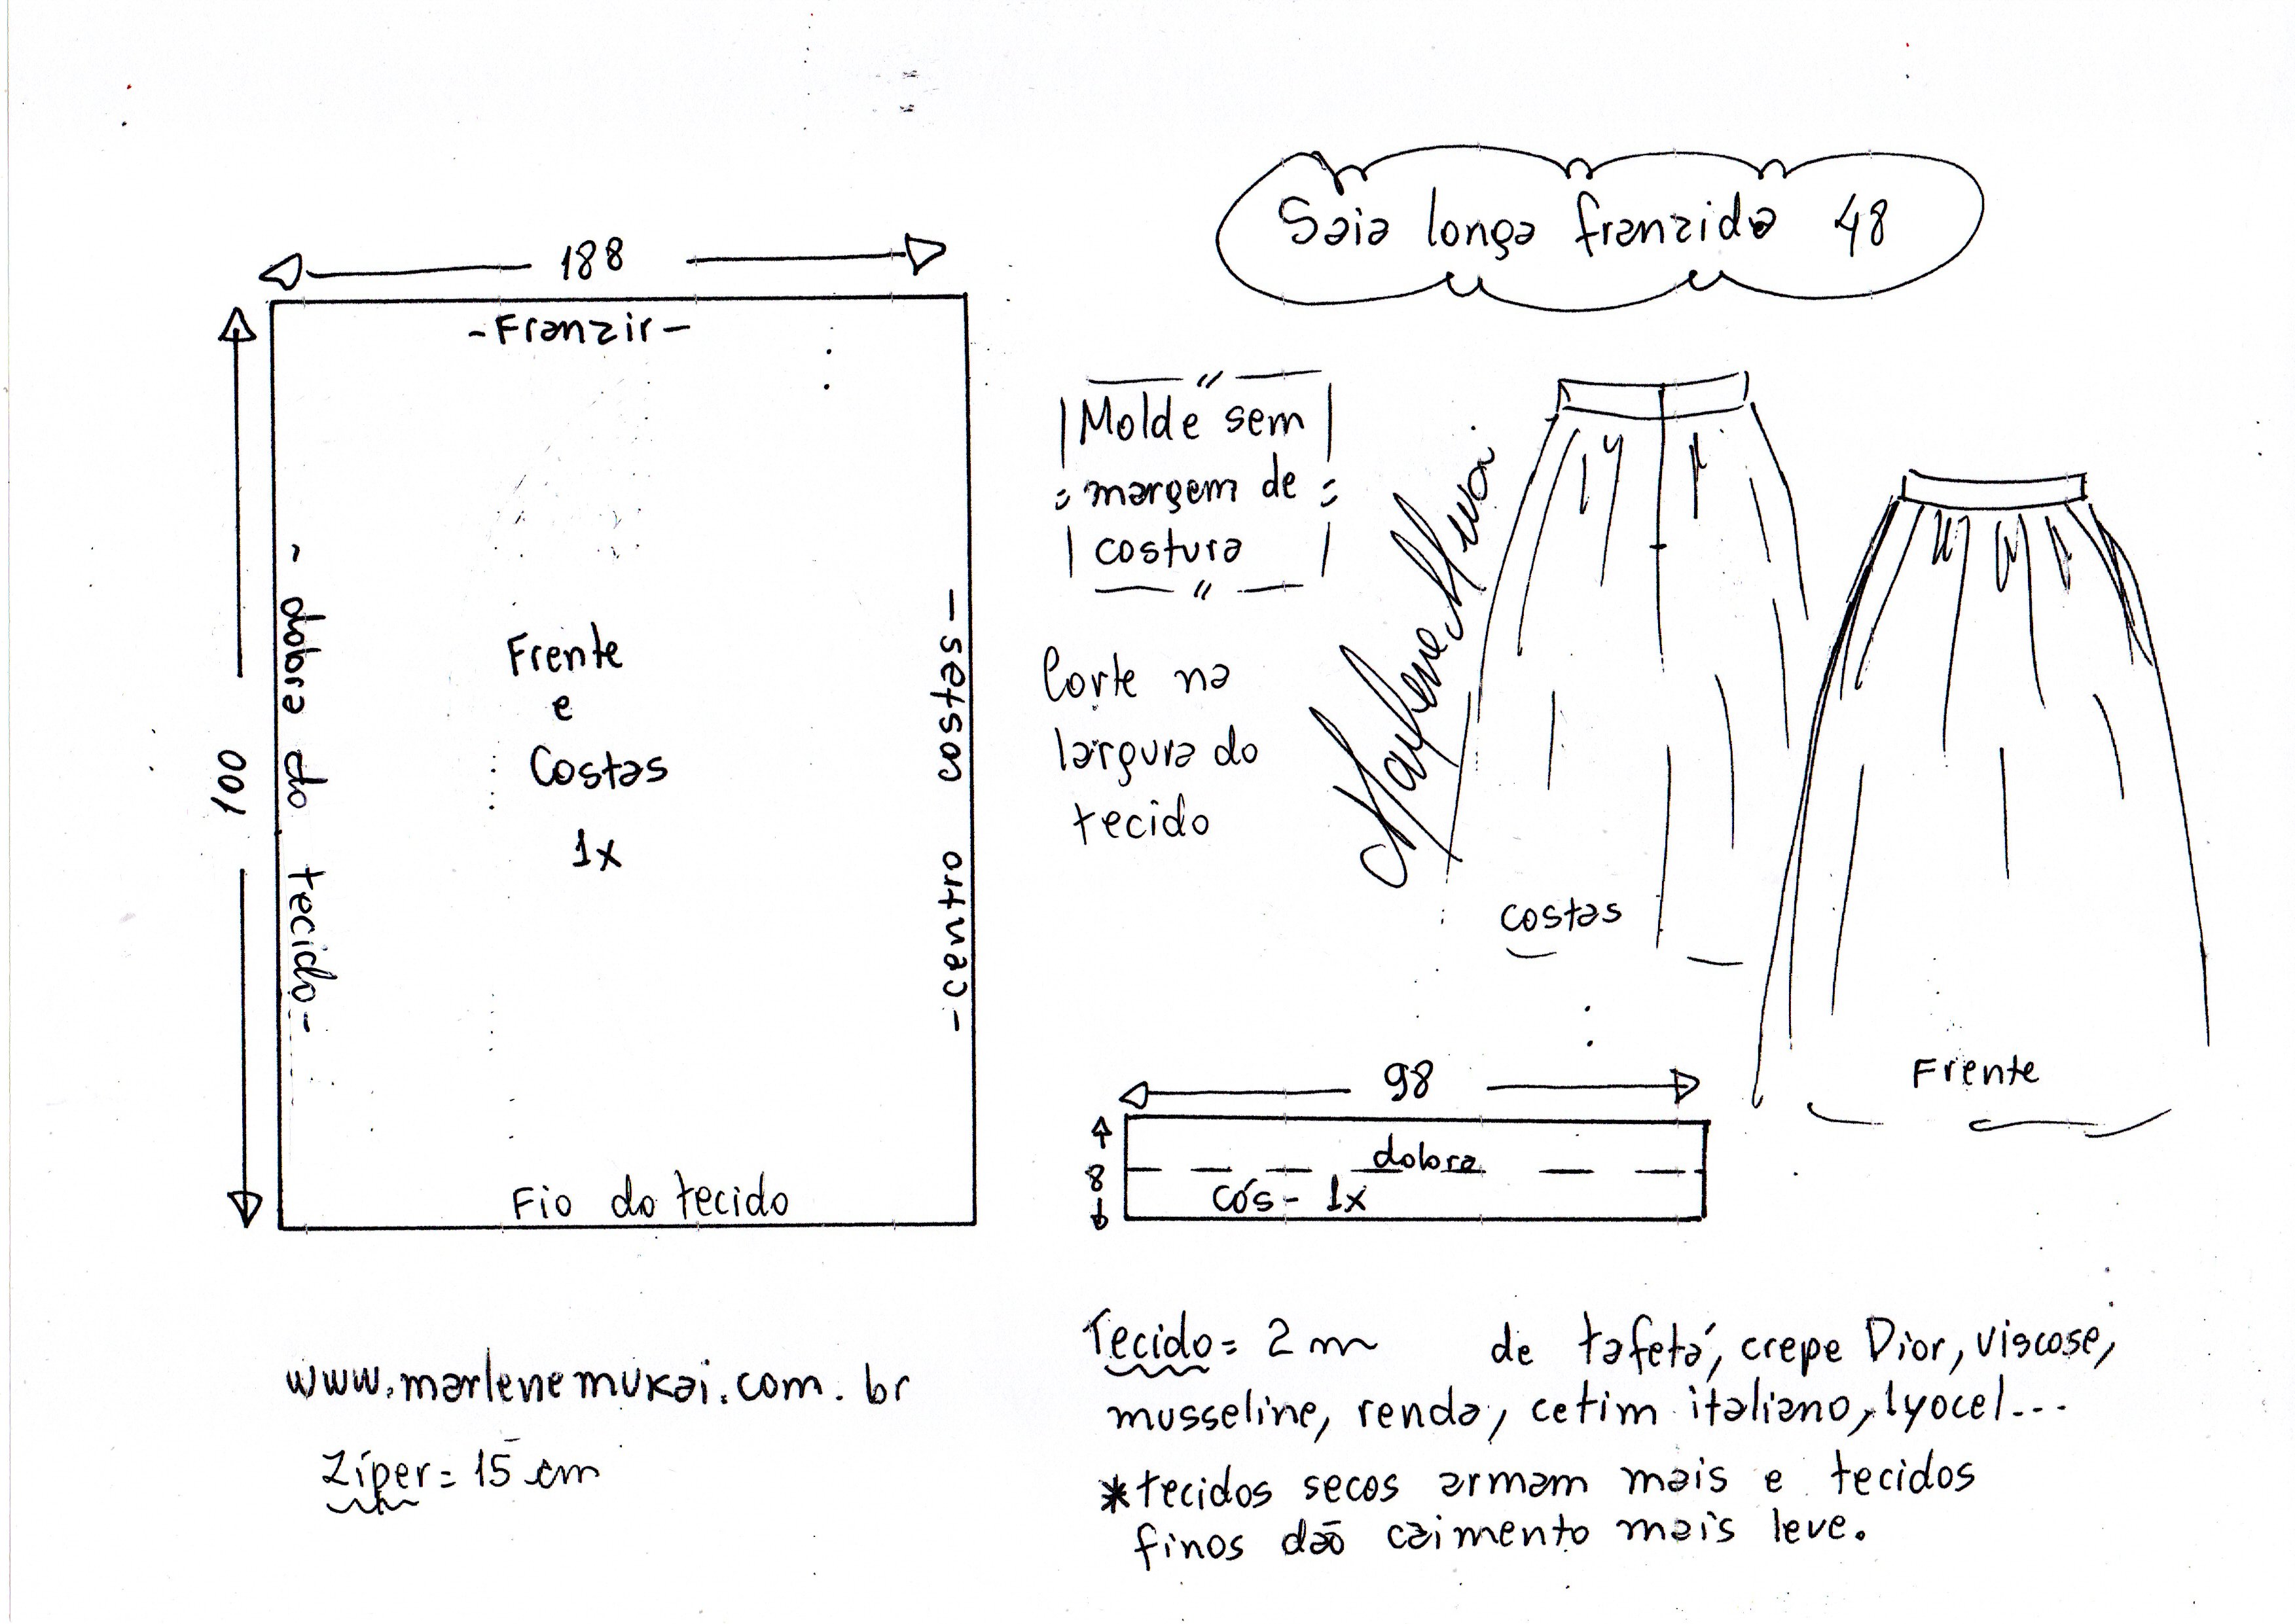 Saia longa franzida 48
188
-Franzir-
100
- dobra do tecido-
Frente
e
Costas
1x
-centro costas-
Fio do tecido
Molde sem
margem de
costura
Corte na
largura do
tecido
costas
Frente
98
8
dobra
cós- 1x
www.marlenemukai.com.br
Zíper= 15 cm
Tecido= 2 m de tafetá, crepe Dior, viscose,
musseline, renda, cetim italiano, lyocel...
*tecidos secos armam mais e tecidos
finos dão caimento mais leve.